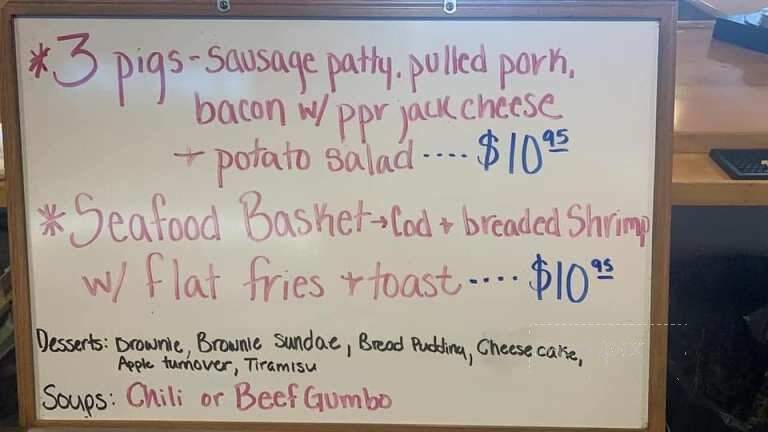 *3 pigs - Sausage patty, pulled pork,
bacon w/ ppr jack cheese
+ potato salad .... $10 95
*Seafood Basket → Cod + breaded Shrimp
w/ flat fries + toast .... $10 95
Desserts: Brownie, Brownie Sundae, Bread Pudding, Cheesecake,
Apple turnover, Tiramisu
Soups: Chili or Beef Gumbo